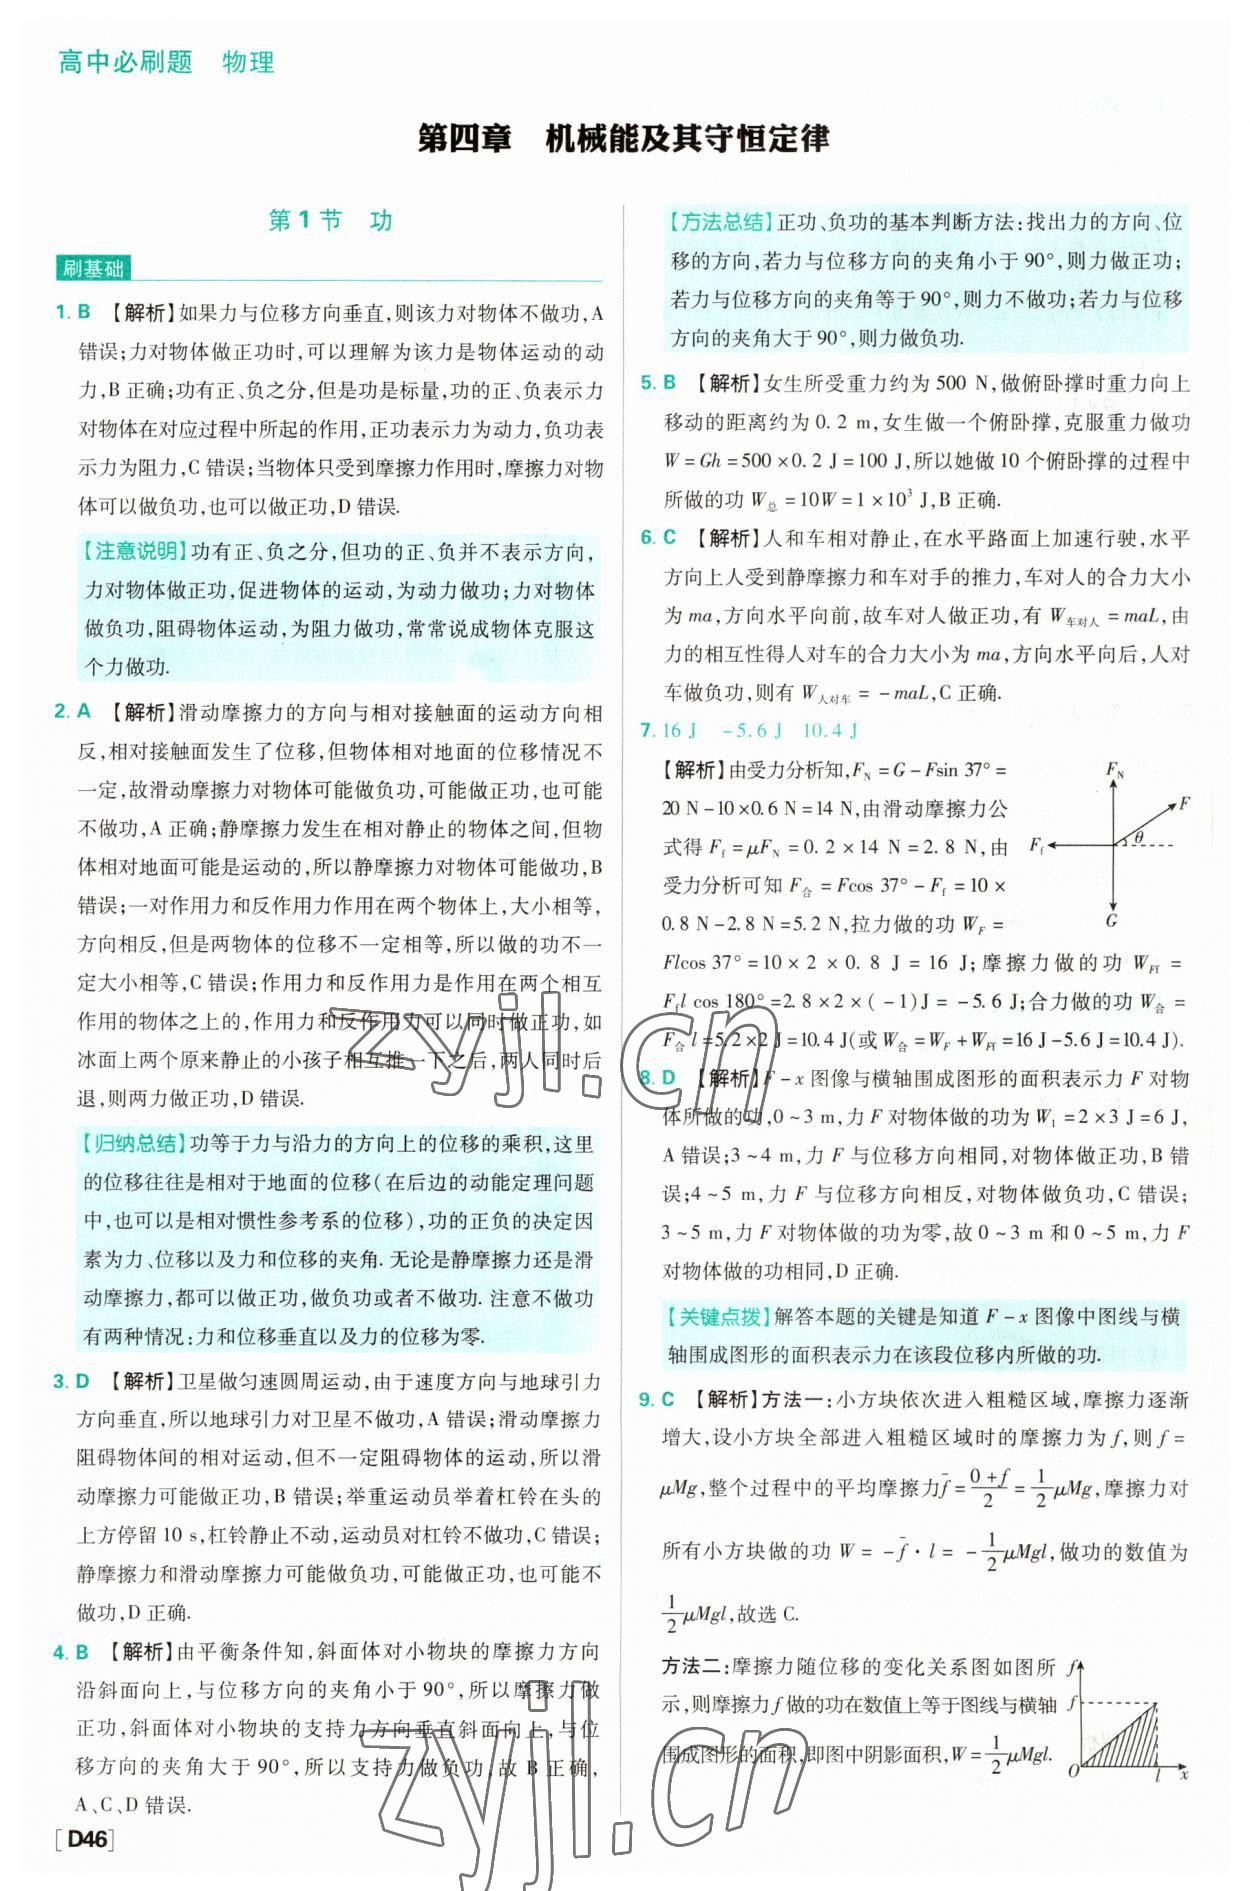 高中必刷题 物理
第四章 机械能及其守恒定律
第1节 功
刷基础
1. B 【解析】如果力与位移方向垂直,则该力对物体不做功,A
错误;力对物体做正功时,可以理解为该力是物体运动的动
力,B 正确;功有正、负之分,但是功是标量,功的正、负表示力
对物体在对应过程中所起的作用,正功表示力为动力,负功表
示力为阻力,C 错误;当物体只受到摩擦力作用时,摩擦力对物
体可以做负功,也可以做正功,D 错误.
【注意说明】功有正、负之分,但功的正、负并不表示方向,
力对物体做正功,促进物体的运动,为动力做功;力对物体
做负功,阻碍物体运动,为阻力做功,常常说成物体克服这
个力做功.
2. A 【解析】滑动摩擦力的方向与相对接触面的运动方向相
反,相对接触面发生了位移,但物体相对地面的位移情况不
一定,故滑动摩擦力对物体可能做负功,可能做正功,也可能
不做功,A 正确;静摩擦力发生在相对静止的物体之间,但物
体相对地面可能是运动的,所以静摩擦力对物体可能做功,B
错误;一对作用力和反作用力作用在两个物体上,大小相等,
方向相反,但是两物体的位移不一定相等,所以做的功不一
定大小相等,C 错误;作用力和反作用力是作用在两个相互
作用的物体之上的,作用力和反作用力可以同时做正功,如
冰面上两个原来静止的小孩子相互推一下之后,两人同时后
退,则两力做正功,D 错误.
【归纳总结】功等于力与沿力的方向上的位移的乘积,这里
的位移往往是相对于地面的位移(在后边的动能定理问题
中,也可以是相对惯性参考系的位移),功的正负的决定因
素为力、位移以及力和位移的夹角. 无论是静摩擦力还是滑
动摩擦力,都可以做正功,做负功或者不做功. 注意不做功
有两种情况:力和位移垂直以及力的位移为零.
3. D 【解析】卫星做匀速圆周运动,由于速度方向与地球引力
方向垂直,所以地球引力对卫星不做功,A 错误;滑动摩擦力
阻碍物体间的相对运动,但不一定阻碍物体的运动,所以滑
动摩擦力可能做正功,B 错误;举重运动员举着杠铃在头的
上方停留 10 s,杠铃静止不动,运动员对杠铃不做功,C 错误;
静摩擦力和滑动摩擦力可能做负功,可能做正功,也可能不
做功,D 正确.
4. B 【解析】由平衡条件知,斜面体对小物块的摩擦力方向
沿斜面向上,与位移方向的夹角小于 90°,所以摩擦力做
正功,斜面体对小物块的支持力方向垂直斜面向上,与位
移方向的夹角大于 90°,所以支持力做负功,故 B 正确,
A、C、D 错误.
[D46]
【方法总结】正功、负功的基本判断方法:找出力的方向、位
移的方向,若力与位移方向的夹角小于 90°,则力做正功;
若力与位移方向的夹角等于 90°,则力不做功;若力与位移
方向的夹角大于 90°,则力做负功.
5. B 【解析】女生所受重力约为 500 N,做俯卧撑时重力向上
移动的距离约为 0.2 m,女生做一个俯卧撑,克服重力做功
W = Gh = 500 × 0.2 J = 100 J,所以她做 10 个俯卧撑的过程中
所做的功 W总 = 10W = 1 × 10³ J,B 正确.
6. C 【解析】人和车相对静止,在水平路面上加速行驶,水平
方向上人受到静摩擦力和车对手的推力,车对人的合力大小
为 ma,方向水平向前,故车对人做正功,有 W车对人 = maL,由
力的相互性得人对车的合力大小为 ma,方向水平向后,人对
车做负功,则有 W人对车 = - maL,C 正确.
7. 16 J -5.6 J 10.4 J
【解析】由受力分析知,F_N = G - Fsin 37° =
20 N-10×0.6 N = 14 N,由滑动摩擦力公
式得 F_f = μF_N = 0.2 × 14 N = 2.8 N,由
受力分析可知 F合 = Fcos 37° - F_f = 10 ×
0.8 N-2.8 N=5.2 N,拉力做的功 W_F =
Flcos 37° = 10 × 2 × 0.8 J = 16 J;摩擦力做的功 W_Ff =
F_f l cos 180° = 2.8×2×(-1)J = -5.6 J;合力做的功 W合 =
F合 l = 5.2×2 J = 10.4 J(或 W合 = W_F + W_Ff = 16 J-5.6 J = 10.4 J).
F_N
F
F_f
θ
G
8. D 【解析】F - x 图像与横轴围成图形的面积表示力 F 对物
体所做的功,0 ~ 3 m,力 F 对物体做的功为 W₁ = 2 × 3 J = 6 J,
A 错误;3 ~ 4 m,力 F 与位移方向相同,对物体做正功,B 错
误;4 ~ 5 m,力 F 与位移方向相反,对物体做负功,C 错误;
3 ~ 5 m,力 F 对物体做的功为零,故 0 ~ 3 m 和 0 ~ 5 m,力 F
对物体做的功相同,D 正确.
【关键点拨】解答本题的关键是知道 F - x 图像中图线与横
轴围成图形的面积表示力在该段位移内所做的功.
9. C 【解析】方法一:小方块依次进入粗糙区域,摩擦力逐渐
增大,设小方块全部进入粗糙区域时的摩擦力为 f,则 f =
μMg,整个过程中的平均摩擦力 f̄ = (0+f)/2 = 1/2 μMg,摩擦力对
所有小方块做的功 W = - f̄ · l = - 1/2 μMgl,做功的数值为
1/2 μMgl,故选 C.
方法二:摩擦力随位移的变化关系图如图所
示,则摩擦力 f 做的功在数值上等于图线与横轴
围成图形的面积,即图中阴影面积,W = 1/2 μMgl.
f
f
O
l
x
zyjl.cn
zyjl.cn